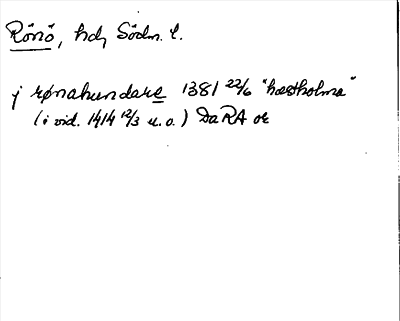 Rönö, hd, Södm. l.
j rønahundare 1381 22/6 "hæstholma"
(i vid. 1414 12/3 u.o.) DaRA or